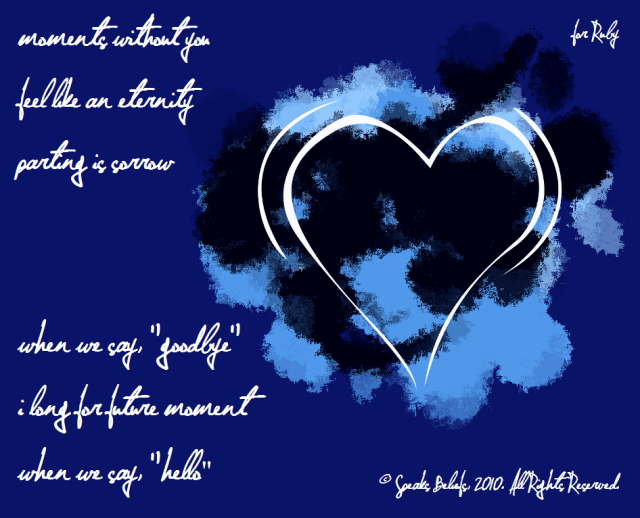 for Ruby
moments without you
feel like an eternity
parting is sorrow
when we say, "goodbye"
i long for future moment
when we say, "hello"
© Speaks Beliefs, 2010. All Rights Reserved.